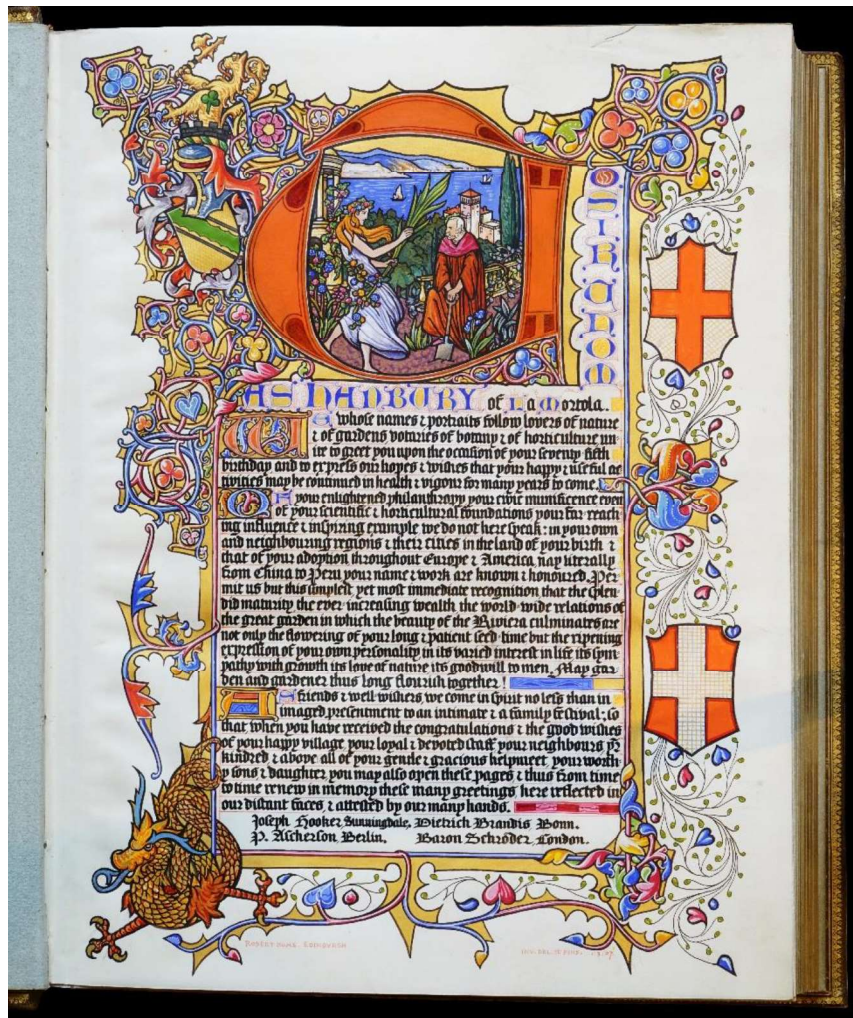 TO SIR THOM
AS HANBURY of La Mortola..
WE whose names & portraits follow lovers of nature
& of gardens votaries of botany & of horticulture un-
ite to greet you upon the occasion of your seventy fifth
birthday and to express our hopes & wishes that your happy & useful ac
tivities may be continued in health & vigour for many years to come.
OF your enlightened philanthropy your civic munificence even
of your scientific & horticultural foundations your far reach
ing influence & inspiring example we do not here speak: in your own
and neighbouring regions & their cities in the land of your birth &
that of your adoption throughout Europe & America, nay literally
from China to Peru your name & work are known & honoured. Per
mit us but this simplest yet most immediate recognition that the splen
did maturity the ever increasing wealth the world wide relations of
the great garden in which the beauty of the Riviera culminates are
not only the flowering of your long & patient seed-time but the ripening
expression of your own personality in its varied interest in life its sym-
pathy with growth its love of nature its goodwill to men. May gar-
den and gardener thus long flourish together!
AS friends & well wishers, we come in spirit no less than in
imaged presentment to an intimate & a family festival; so
that when you have received the congratulations & the good wishes
of your happy village your loyal & devoted staff your neighbours yr
kindred & above all of your gentle & gracious helpmeet, your worth
y sons & daughter you may also open these pages & thus from time
to time renew in memory these many greetings, here reflected in
our distant faces, & attested by our many hands.
Joseph Hooker, Sunningdale, Dietrich Brandis Bonn.
P. Ascherson Berlin. Baron Schröder London.
ROBERT HOME EDINBURGH